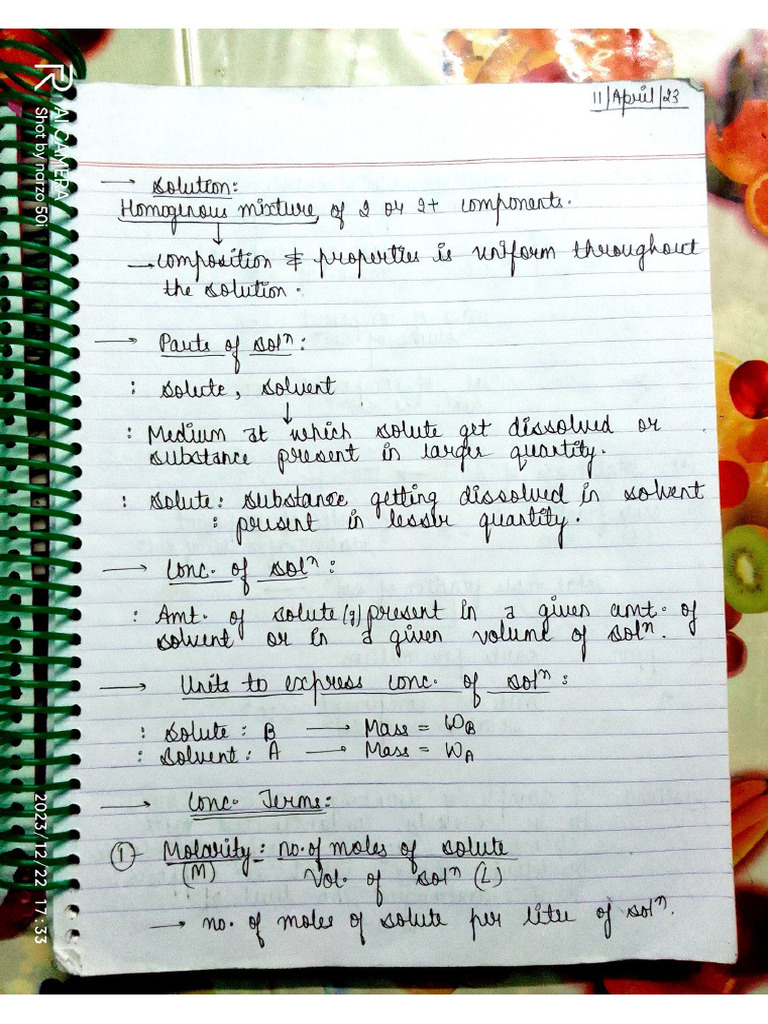 11/April/23
→ Solution:
Homogenous mixture of 2 or 2+ components.
→ composition & properties is uniform throughout
the solution.
→ Parts of solⁿ:
: solute, solvent
↓
: Medium at which solute get dissolved or
substance present in larger quantity.
: solute: substance getting dissolved in solvent
: present in lesser quantity.
→ Conc. of solⁿ:
: Amt. of solute (g) present in a given amt. of
solvent or in a given volume of solⁿ.
→ Units to express conc. of solⁿ:
: Solute: B → Mass = WB
: Solvent: A → Mass = WA
→ Conc. Terms:
① Molarity: no. of moles of solute
(M) Vol. of solⁿ (L)
→ no. of moles of solute per liter of solⁿ.
R AI CAMERA
Shot by narzo 50i
2023/12/22 17:33